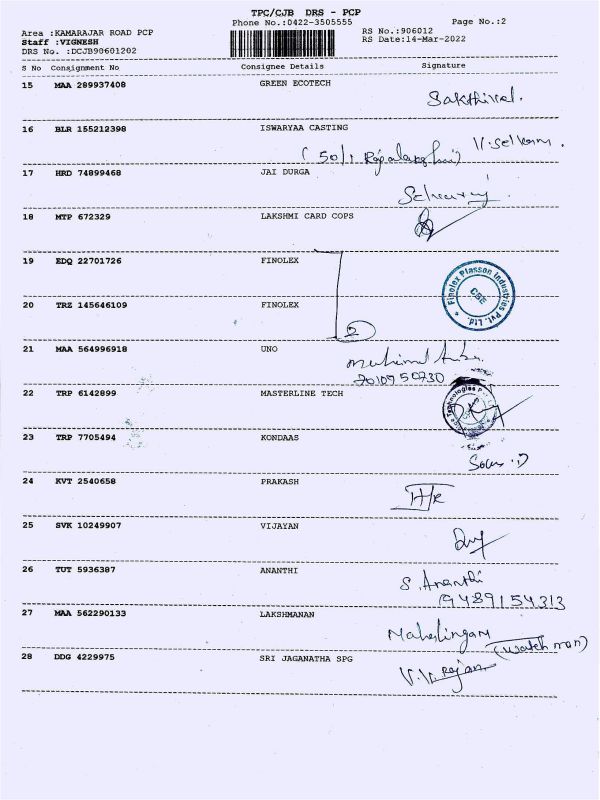 TPC/CJB DRS - PCP
Phone No.:0422-3505555 Page No.:2
Area :KAMARAJAR ROAD PCP RS No.:906012
Staff :VIGNESH RS Date:14-Mar-2022
DRS No. :DCJB90601202
S No Consignment No Consignee Details Signature
15 MAA 289937408 GREEN ECOTECH
Sakthivel.
16 BLR 155212398 ISWARYAA CASTING
(50/1 V.Selvam.
17 HRD 74899468 JAI DURGA
Selvaraj.
18 MTP 672329 LAKSHMI CARD COPS
19 EDQ 22701726 FINOLEX
Finolex Plasson Industries Pvt. Ltd.
CBE
20 TRZ 145646109 FINOLEX
2
21 MAA 564996918 UNO
22 TRP 6142899 MASTERLINE TECH
Technologies
23 TRP 7705494 KONDAAS
24 KVT 2540658 PRAKASH
25 SVK 10249907 VIJAYAN
26 TUT 5936387 ANANTHI
S. Ananthi
9489154313
27 MAA 562290133 LAKSHMANAN
Mahalingam
(watch man)
28 DDG 4229975 SRI JAGANATHA SPG
V.V. Rajan